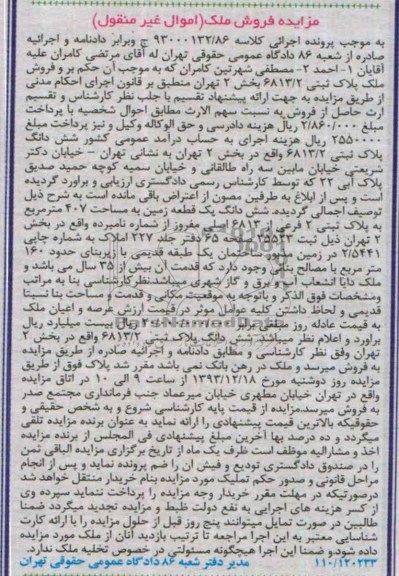 مزایده فروش ملک(اموال غیر منقول)
به موجب پرونده اجرائی کلاسه ۹۳۰۰۰۱۳۲/۸۶ ج وبرابر دادنامه و اجرائیه
صادره از شعبه ۸۶ دادگاه عمومی حقوقی تهران له آقای مرتضی کامران علیه
آقایان ۱- احمد ۲- مصطفی شهرتین کامران که به موجب آن حکم بر و فروش
ملک پلاک ثبتی ۶۸۱۳/۲ بخش ۲ تهران منطبق بر قانون اجرای احکام مدنی
از طریق مزایده به جهت ارائه پیشنهاد تقسیم با جلب نظر کارشناس و تقسیم
ارث حاصل از فروش به نسبت سهم الارث مطابق احوال شخصیه با پرداخت
مبلغ ۲/۸۶۰/۰۰۰ ریال هزینه دادرسی و حق الوکاله وکیل و نیز پرداخت مبلغ
۲۵۵۰۰۰۰ ریال هزینه اجرای به حساب درآمد عمومی کشور شش دانگ
پلاک ثبتی ۶۸۱۳/۲ واقع در بخش ۲ تهران به نشانی تهران – خیابان دکتر
شریعتی خیابان مابین سه راه طالقانی و خیابان سمیه کوچه حمید صدیق
پلاک آبی ۲۲ که توسط کارشناس رسمی دادگستری ارزیابی و برآورد گردیده
است و پس از ابلاغ به طرفین مصون از اعتراض باقی مانده است به شرح ذیل
توصیف اجمالی گردیده. شش دانگ یک قطعه زمین به مساحت ۴۰۷ مترمربع
به پلاک ثبتی ۲ فرعی از مفروز از شماره نامبرده واقع در بخش
۲ تهران ذیل ثبت صفحه ۶۵ دفتر جلد ۲۲۷ املاک به شماره چاپی
۲/۵۴۴۱ در زمین مزبور ساختمان یک طبقه قدیمی با زیربنای حدود ۱۶۰
متر مربع با مصالح بنائی وجود دارد که قدمت آن بیش از ۳۵ سال می باشد و
ملک دارا انشعاب آب و برق و گاز شهری میباشد. نظر کارشناسی بنا به مراتب
ومشخصات فوق الذکر و باتوجه به موقعیت مکانی و قدمت و مساحت بنا نسبتا
قدیمی و لحاظ داشتن کلیه عوامل موثر در قیمت ارزش عرصه و اعیان ملک
به قیمت عادله روز مبلغ بیست میلیارد ریال
براورد و اعلام نظر میباشد. شش دانگ پلاک ثبتی ۶۸۱۳/۲ واقع در بخش ۲
تهران وفق نظر کارشناسی و مطابق دادنامه و اجرائیه صادره از طریق مزایده
به فروش میرسد و ملک در رهن بانک نمی باشد مقرر شد پلاک فوق از طریق
مزایده روز دوشنبه مورخ ۱۳۹۳/۱۲/۱۸ از ساعت ۹ الی ۱۰ در اتاق مزایده
واقع در تهران خیابان مطهری خیابان میرعماد جنب فرمانداری مجتمع صدر
به فروش میرسد.مزایده از قیمت پایه کارشناسی شروع و به شخص حقیقی و
حقوقیکه بالاترین قیمت پیشنهادی را ارائه نماید به عنوان برنده مزایده تلقی
میگردد و ده درصد بها آخرین مبلغ پیشنهادی فی المجلس از برنده مزایده
اخذ و مشارالیه موظف است ظرف یک ماه از تاریخ برگزاری مزایده الباقی ثمن
را در صندوق دادگستری تودیع و فیش آن را ضم پرونده نماید و پس از انجام
مراحل قانونی و صدور حکم تملیک مورد مزایده بنام خریدار منتقل خواهد شد
درصورتیکه در مهلت مقرر خریدار وجه مزایده را پرداخت ننماید سپرده وی
از کسر هزینه های اجرایی به نفع دولت ظبط و مزایده تجدید میگردد ضمنا
طالبین در صورت تمایل میتوانند پنج روز قبل از حلول مزایده را با ارائه کارت
شناسایی معتبر به این اجرا مراجعه تا ترتیب بازدید آنان از ملک مورد مزایده
داده شود.و ضمنا این اجرا هیچگونه مسئولتی در خصوص تخلیه ملک ندارد.
۱۱۰/۱۲۰۲۳۳ مدیر دفتر شعبه ۸۶ دادگاه عمومی حقوقی تهران